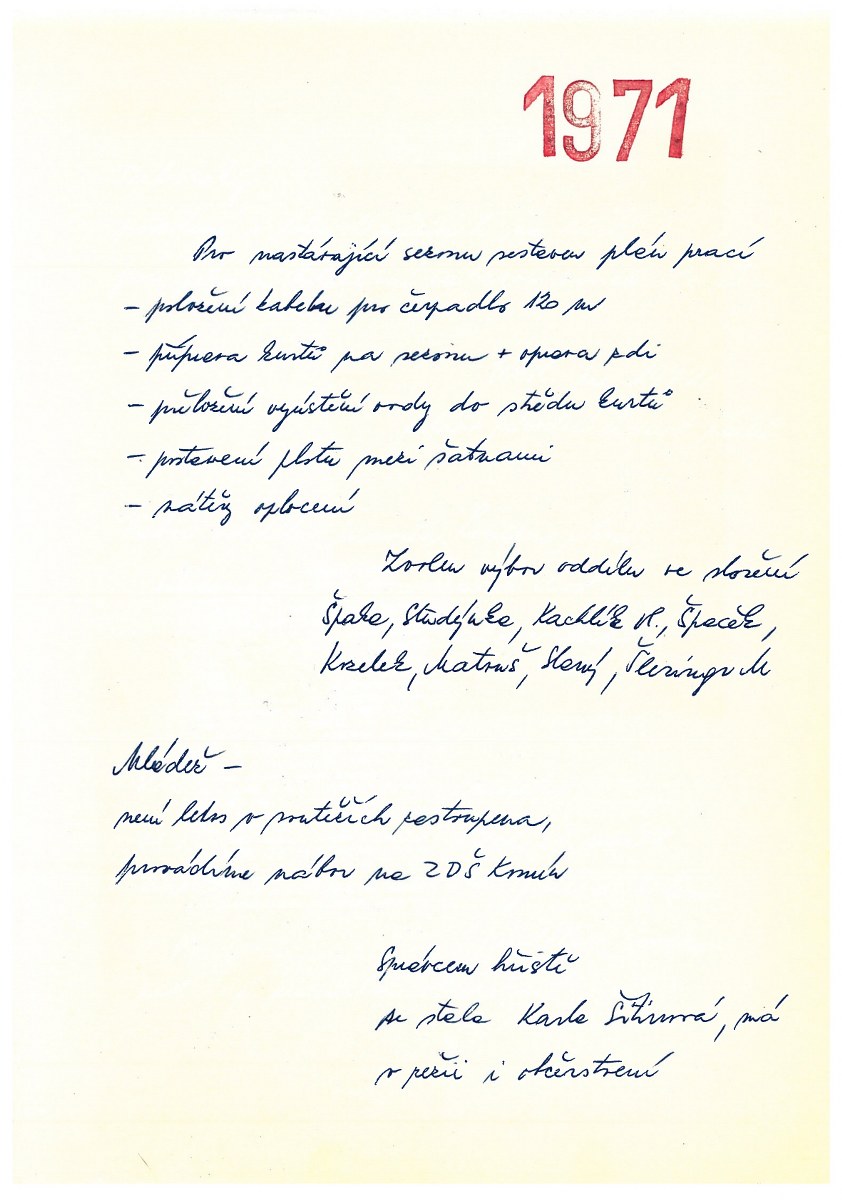 1971
Pro nastávající sezonu sestaven plán prací
– položení kabelu pro čerpadlo 120 m
– příprava kurtů na sezonu + oprava zdi
– přeložení vyústění vody do středu kurtů
– postavení plotu mezi šatnami
– nátěry oplocení
Zvolen výbor oddílu ve složení
Špaka, Studýnka, Kachlík Vl., Špaček,
Krzelek, Matouš, Slaný, Šlezingr M
Mládež –
není letos v soutěžích zastoupena,
provádíme nábor na ZDŠ Komín
Správcem hřiště
se stala Karla Šitinová, má
v režii i občerstvení